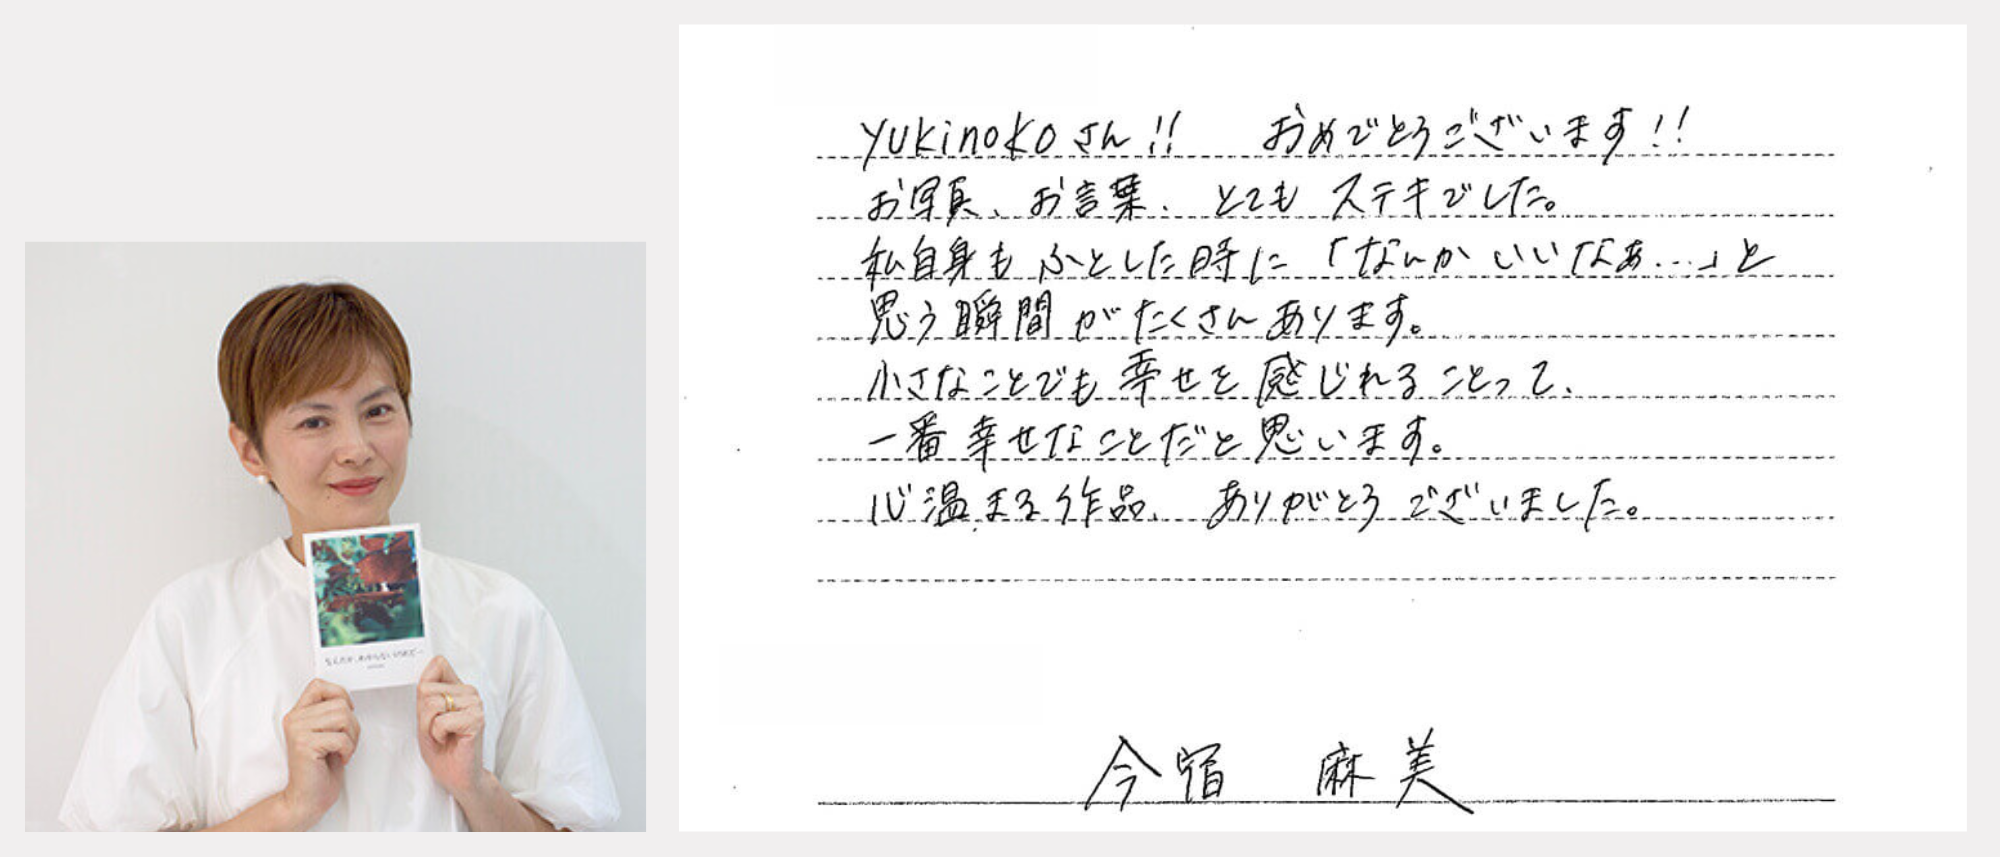 yukinokoさん!! おめでとうございます!!
お写真、お言葉、とてもステキでした。
私自身もふとした時に「なんかいいなぁ…」と
思う瞬間がたくさんあります。
小さなことでも幸せを感じれることって、
一番幸せなことだと思います。
心温まる作品、ありがとうございました。
今宿 麻美
なんだか、わからないけれど…